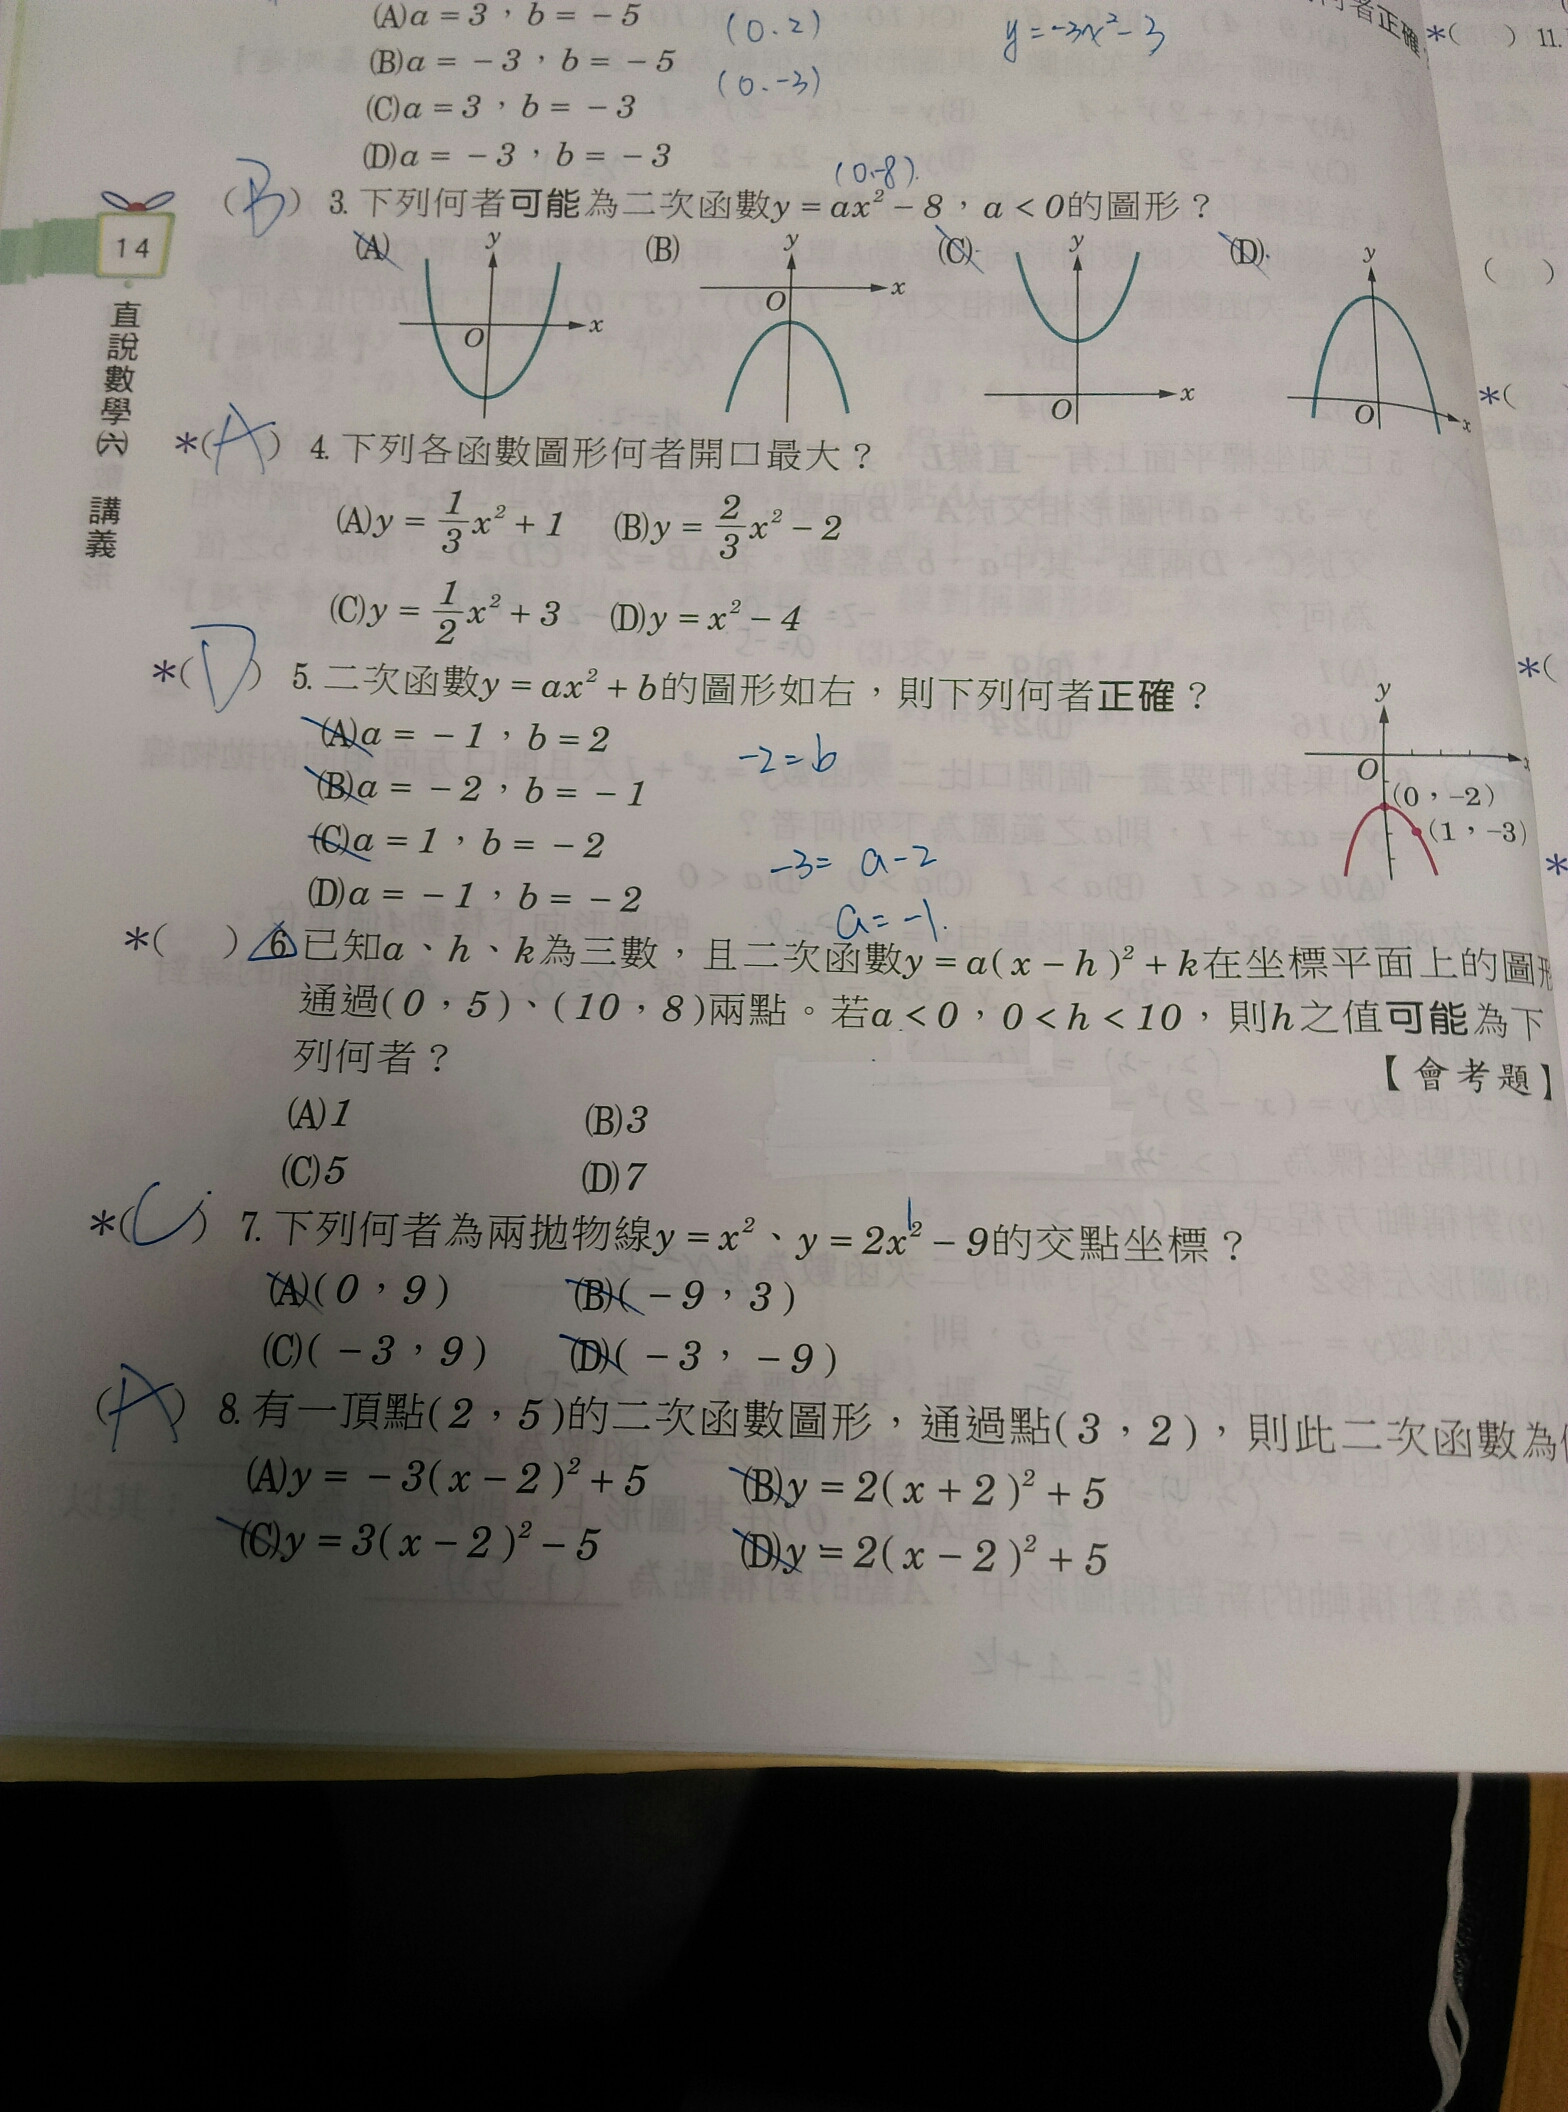 (A)a＝3，b＝－5
(0.2)
y=-3x²-3
(B)a＝－3，b＝－5
(0.-3)
(C)a＝3，b＝－3
(D)a＝－3，b＝－3
者正確
*(　) 11.
(0.-8).
(B) 3. 下列何者可能為二次函數y＝ax²－8，a＜0的圖形？
(A) (B) (C) (D)
y y y y
O x O x O x O x
14
直說數學(六) 講義
*(A) 4. 下列各函數圖形何者開口最大？
(A)y＝1/3x²＋1 (B)y＝2/3x²－2
(C)y＝1/2x²＋3 (D)y＝x²－4
*(D) 5. 二次函數y＝ax²＋b的圖形如右，則下列何者正確？
(A)a＝－1，b＝2
(B)a＝－2，b＝－1
(C)a＝1，b＝－2
(D)a＝－1，b＝－2
-2=b
-3=a-2
a=-1.
y
O
(0，-2)
(1，-3)
*(　) 6. 已知a、h、k為三數，且二次函數y＝a(x－h)²＋k在坐標平面上的圖形
通過(0，5)、(10，8)兩點。若a＜0，0＜h＜10，則h之值可能為下
列何者？
【會考題】
(A)1 (B)3
(C)5 (D)7
*(C) 7. 下列何者為兩拋物線y＝x²、y＝2x²－9的交點坐標？
(A)(0，9) (B)(－9，3)
(C)(－3，9) (D)(－3，－9)
(A) 8. 有一頂點(2，5)的二次函數圖形，通過點(3，2)，則此二次函數為
(A)y＝－3(x－2)²＋5 (B)y＝2(x＋2)²＋5
(C)y＝3(x－2)²－5 (D)y＝2(x－2)²＋5